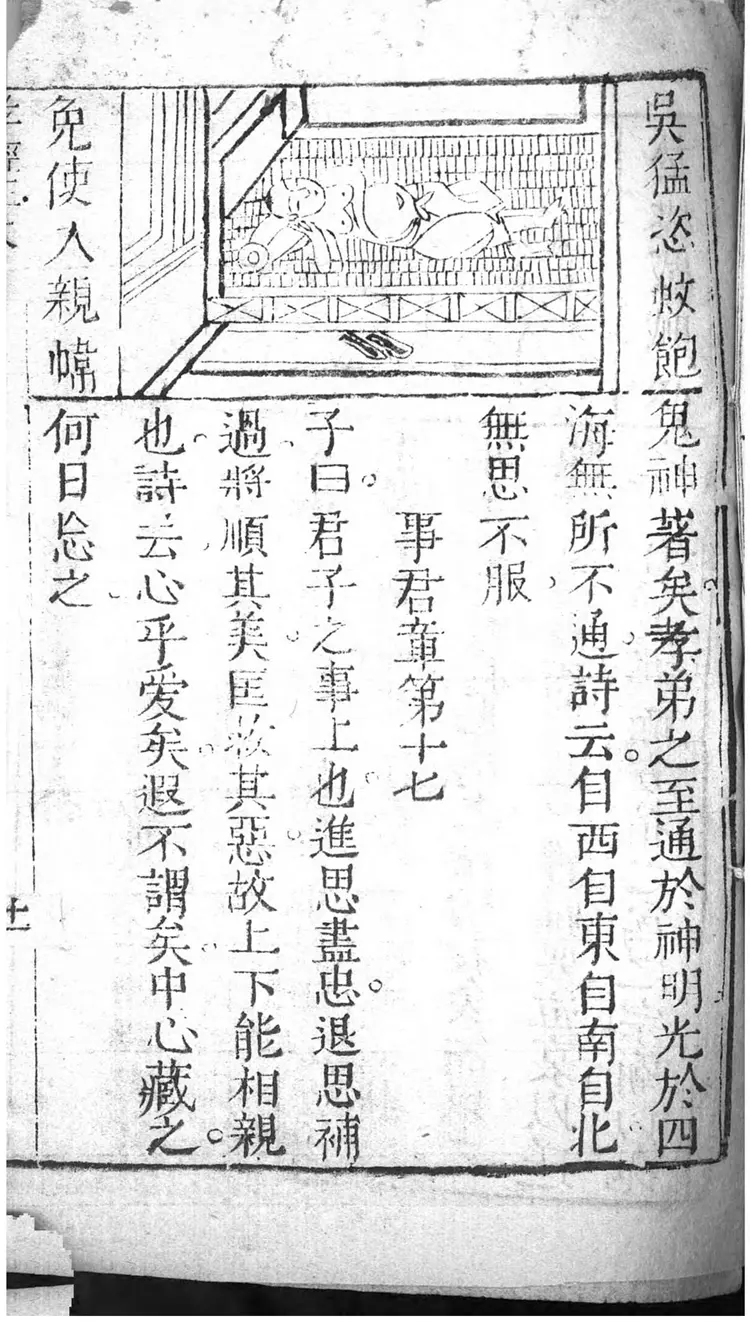 吳猛恣蚊飽
免使入親幃
鬼神著矣孝弟之至通於神明光於四
海無所不通詩云自西自東自南自北
無思不服
事君章第十七
子曰君子之事上也進思盡忠退思補
過將順其美匡救其惡故上下能相親
也詩云心乎愛矣遐不謂矣中心藏之
何日忘之